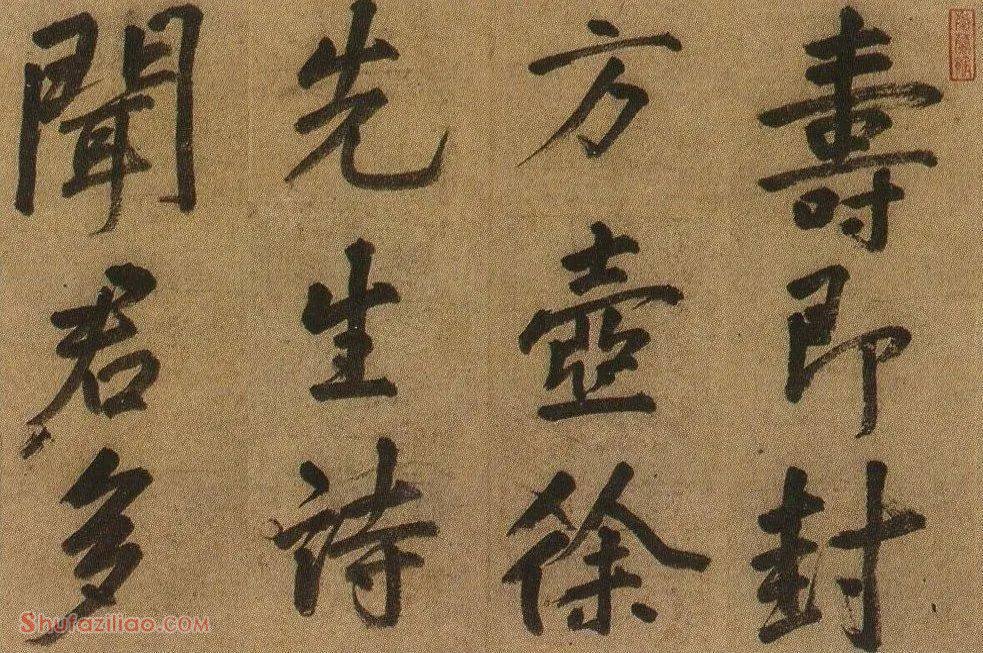 壽即封
方壺徐
先生詩
聞君多
Shufaziliao.COM